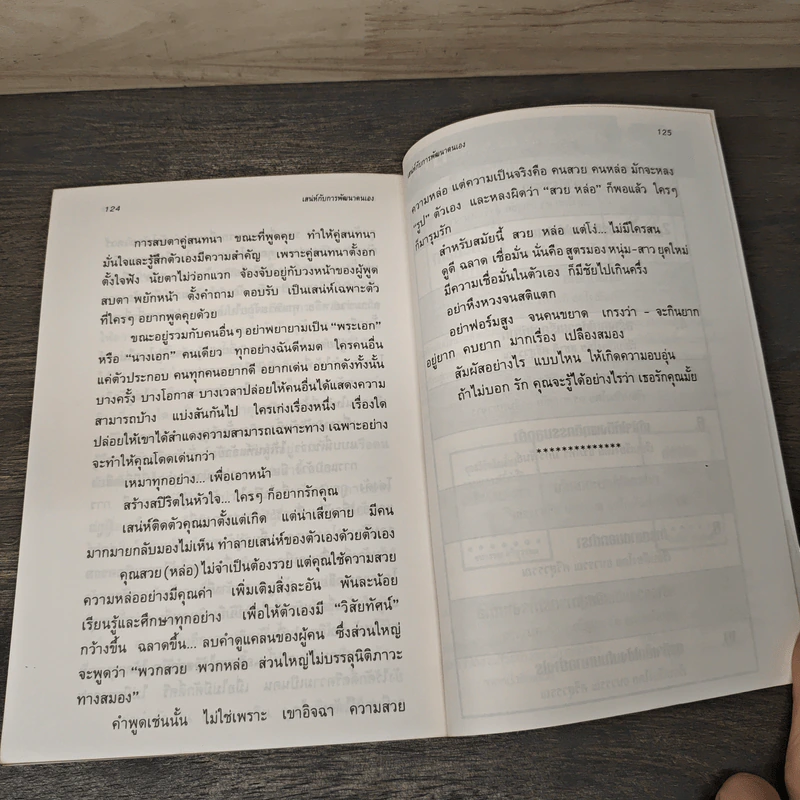 124
เสน่ห์กับการพัฒนาตนเอง
การสบตาคู่สนทนา ขณะที่พูดคุย ทำให้คู่สนทนา
มั่นใจและรู้สึกตัวเองมีความสำคัญ เพราะคู่สนทนาตั้งอก
ตั้งใจฟัง นัยตาไม่ว่อกแวก จ้องจับอยู่กับวงหน้าของผู้พูด
สบตา พยักหน้า ตั้งคำถาม ตอบรับ เป็นเสน่ห์เฉพาะตัว
ที่ใครๆ อยากพูดคุยด้วย
ขณะอยู่รวมกับคนอื่นๆ อย่าพยายามเป็น “พระเอก”
หรือ “นางเอก” คนเดียว ทุกอย่างฉันดีหมด ใครคนอื่น
แค่ตัวประกอบ คนทุกคนอยากดี อยากเด่น อยากดังทั้งนั้น
บางครั้ง บางโอกาส บางเวลาปล่อยให้คนอื่นได้แสดงความ
สามารถบ้าง แบ่งสันกันไป ใครเก่งเรื่องหนึ่ง เรื่องใด
ปล่อยให้เขาได้สำแดงความสามารถเฉพาะทาง เฉพาะอย่าง
จะทำให้คุณโดดเด่นกว่า
เหมาทุกอย่าง... เพื่อเอาหน้า
สร้างสปิริตในหัวใจ... ใครๆ ก็อยากรักคุณ
เสน่ห์ติดตัวคุณมาตั้งแต่เกิด แต่น่าเสียดาย มีคน
มากมายกลับมองไม่เห็น ทำลายเสน่ห์ของตัวเองด้วยตัวเอง
คุณสวย (หล่อ) ไม่จำเป็นต้องรวย แต่คุณใช้ความสวย
ความหล่ออย่างมีคุณค่า เพิ่มเติมสิ่งละอัน พันละน้อย
เรียนรู้และศึกษาทุกอย่าง เพื่อให้ตัวเองมี “วิสัยทัศน์”
กว้างขึ้น ฉลาดขึ้น... ลบคำดูแคลนของผู้คน ซึ่งส่วนใหญ่
จะพูดว่า “พวกสวย พวกหล่อ ส่วนใหญ่ไม่บรรลุนิติภาวะ
ทางสมอง”
คำพูดเช่นนั้น ไม่ใช่เพราะ เขาอิจฉา ความสวย
125
เสน่ห์กับการพัฒนาตนเอง
ความหล่อ แต่ความเป็นจริงคือ คนสวย คนหล่อ มักจะหลง
“รูป” ตัวเอง และหลงผิดว่า “สวย หล่อ” ก็พอแล้ว ใครๆ
ก็มารุมรัก
สำหรับสมัยนี้ สวย หล่อ แต่โง่... ไม่มีใครสน
ดูดี ฉลาด เชื่อมั่น นั่นคือ สูตรมอง หนุ่ม-สาว ยุคใหม่
มีความเชื่อมั่นในตัวเอง ก็มีชัยไปเกินครึ่ง
อย่าหึงหวงจนสติแตก
อย่าฟอร์มสูง จนคนขยาด เกรงว่า - จะกินยาก
อยู่ยาก คบยาก มากเรื่อง เปลืองสมอง
สัมผัสอย่างไร แบบไหน ให้เกิดความอบอุ่น
ถ้าไม่บอก รัก คุณจะรู้ได้อย่างไรว่า เธอรักคุณมั้ย
**************